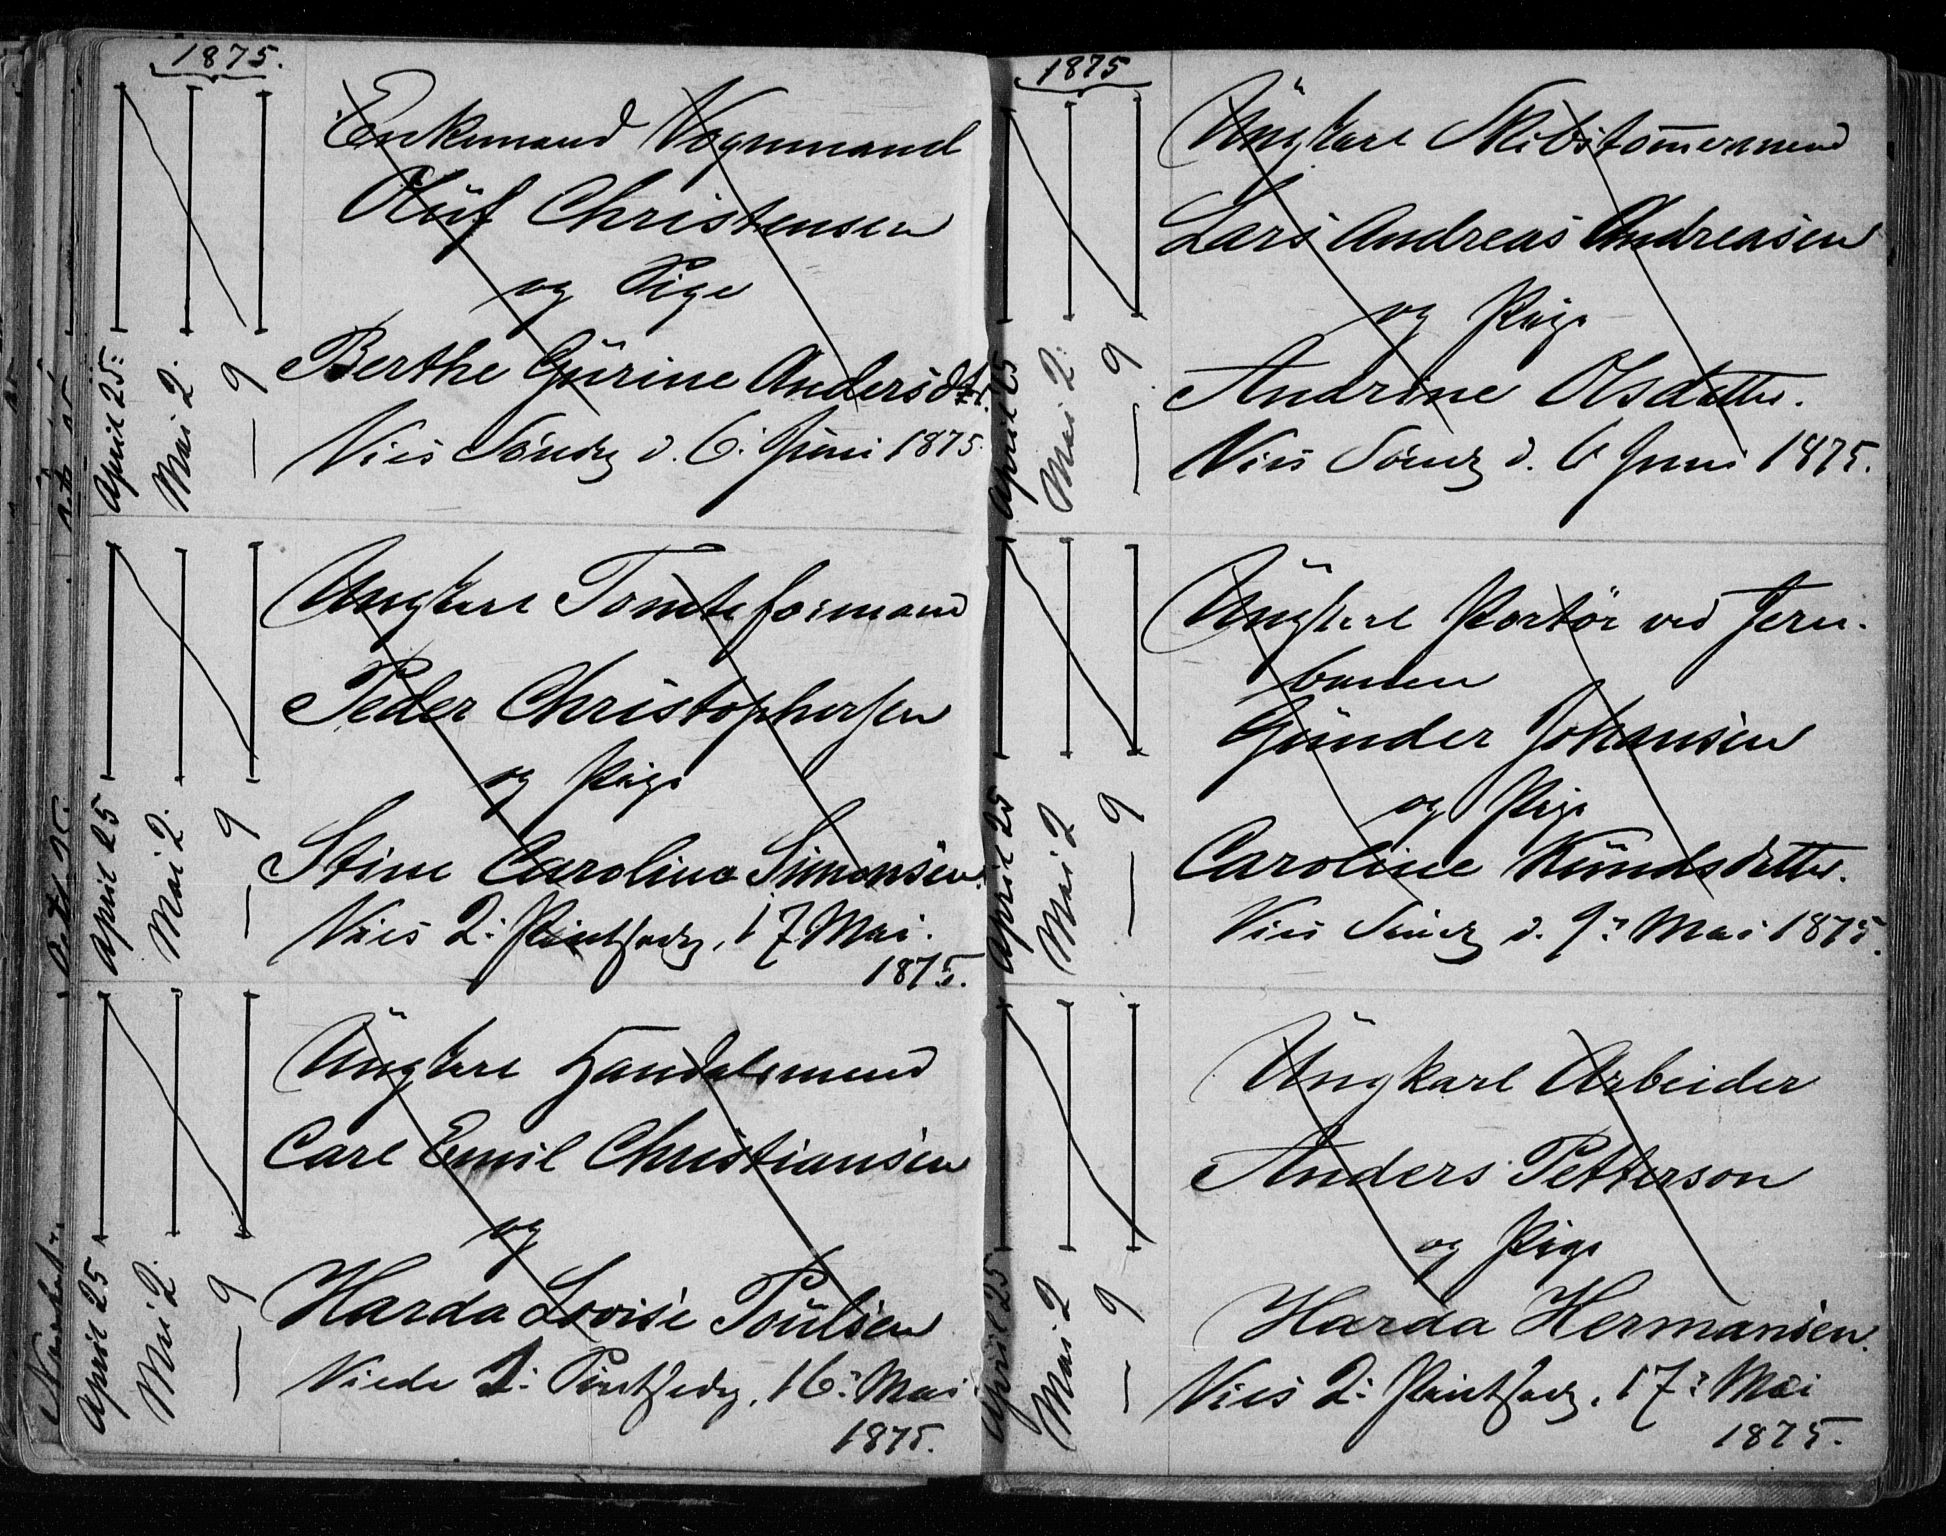 1875.
Enkemand Vognmand
Oluf Christensen
og Pige
Berthe Gurine Andersdtr.
Vies Søndg d. 6: Juni 1875.
April 25:
Mai 2.
— 9
Ungkarl Tomteformand
Peder Christophersen
og Pige
Stine Carolina Simonsen.
Vies 2: Pintsedg. 17 Mai.
1875.
April 25
Mai 2.
— 9
Ungkarl Handelsmand
Carl Emil Christiansen
og
Harda Lovise Poulsen
Viede 1: Pintsedg. 16: Mai
1875.
April 25
Mai 2.
— 9
1875
Ungkarl Skibstømermand
Lars Andreas Andreasen
og Pige
Andrine Olsdatter.
Vies Søndg d. 6 Juni 1875.
April 25
Mai 2.
— 9
Ungkarl Portør ved Jern-
banen
Gunder Johansen
og Pige
Caroline Knudsdatter.
Vies Søndg d. 9: Mai 1875.
April 25
Mai 2
— 9
Ungkarl Arbeider
Anders Petterson
og Pige
Harda Hermansen.
Vies 2: Pintsedg. 17: Mai
1875.
April 25
Mai 2
— 9